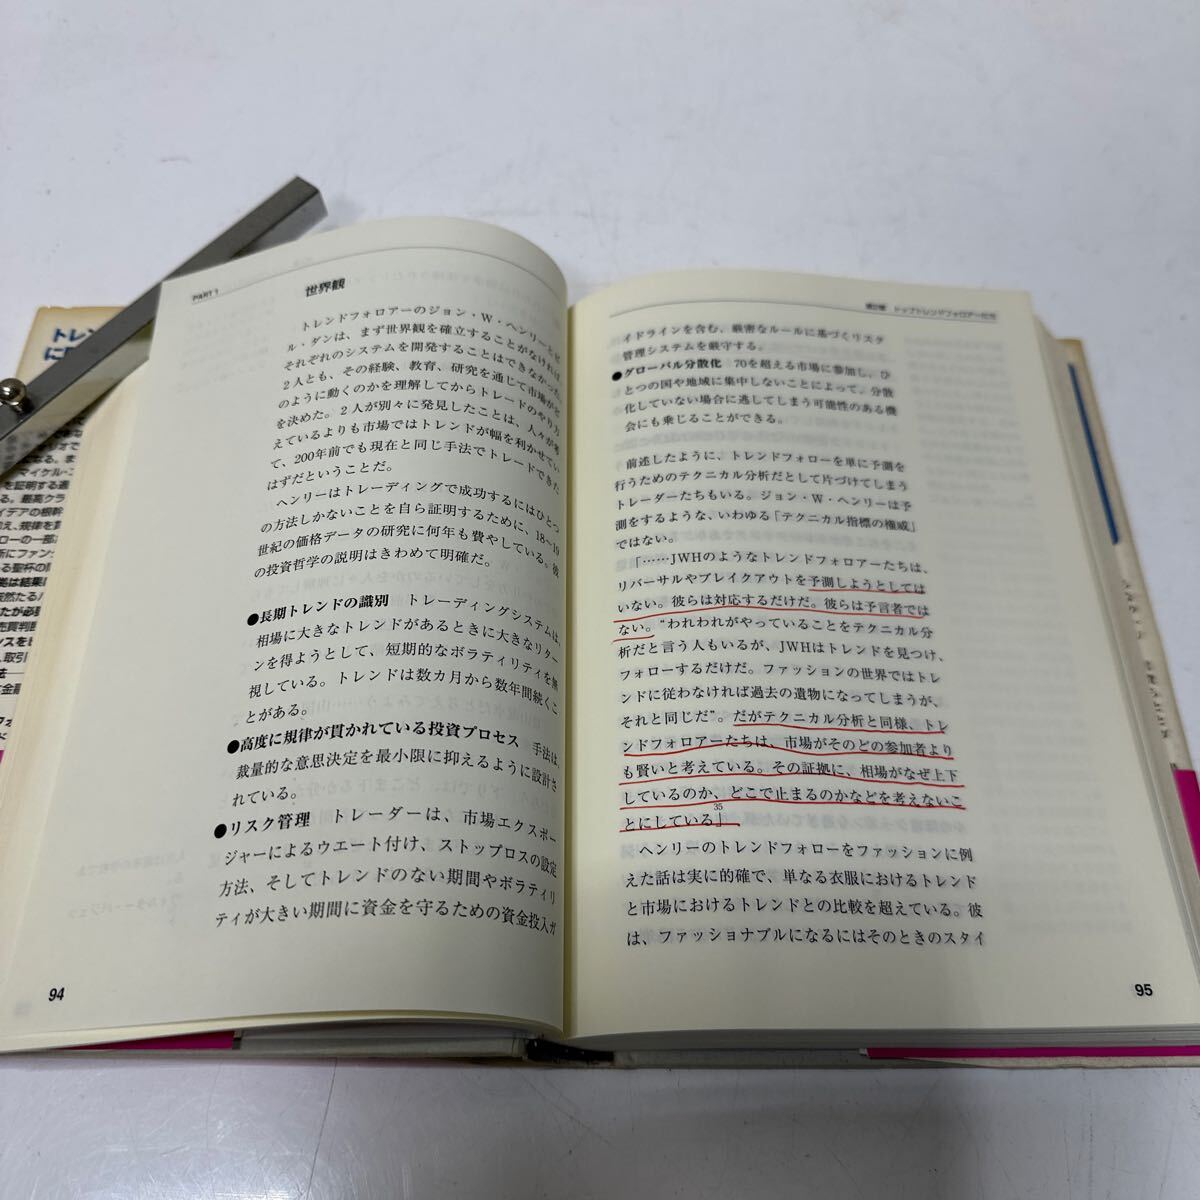 PART 1
世界観
トレンドフォロアーのジョン・W・ヘンリーとビ
ル・ダンは、まず世界観を確立することがなければ、
それぞれのシステムを開発することはできなかった。
2人とも、その経験、教育、研究を通じて市場がど
のように動くのかを理解してからトレードのやり方
を決めた。2人が別々に発見したことは、人々が考
えているよりも市場ではトレンドが幅を利かせてい
て、200年前でも現在と同じ手法でトレードできた
はずだということだ。
ヘンリーはトレーディングで成功するにはひとつ
の方法しかないことを自ら証明するために、18～19
世紀の価格データの研究に何年も費やしている。彼
の投資哲学の説明はきわめて明確だ。
●長期トレンドの識別 トレーディングシステムは、
相場に大きなトレンドがあるときに大きなリター
ンを得ようとして、短期的なボラティリティを無
視している。トレンドは数カ月から数年間続くこ
とがある。
●高度に規律が貫かれている投資プロセス 手法は、
裁量的な意思決定を最小限に抑えるように設計さ
れている。
●リスク管理 トレーダーは、市場エクスポー
ジャーによるウエート付け、ストップロスの設定
方法、そしてトレンドのない期間やボラティリ
ティが大きい期間に資金を守るための資金投入ガ
94
第2章 トップトレンドフォロアーたち
イドラインを含む、厳密なルールに基づくリスク
管理システムを厳守する。
●グローバル分散化 70を超える市場に参加し、ひ
とつの国や地域に集中しないことによって、分散
化していない場合に逃してしまう可能性のある機
会にも乗じることができる。
前述したように、トレンドフォローを単に予測を
行うためのテクニカル分析だとして片づけてしまう
トレーダーたちもいる。ジョン・W・ヘンリーは予
測をするような、いわゆる「テクニカル指標の権威」
ではない。
「……JWHのようなトレンドフォロアーたちは、
リバーサルやブレイクアウトを予測しようとしては
いない。彼らは対応するだけだ。彼らは予言者では
ない。“われわれがやっていることをテクニカル分
析だと言う人もいるが、JWHはトレンドを見つけ、
フォローするだけだ。ファッションの世界ではトレ
ンドに従わなければ過去の遺物になってしまうが、
それと同じだ”。だがテクニカル分析と同様、トレ
ンドフォロアーたちは、市場がそのどの参加者より
も賢いと考えている。その証拠に、相場がなぜ上下
しているのか、どこで止まるのかなどを考えないこ
とにしている」35
ヘンリーのトレンドフォローをファッションに例
えた話は実に的確で、単なる衣服におけるトレンド
と市場におけるトレンドとの比較を超えている。彼
は、ファッショナブルになるにはそのときのスタイ
95